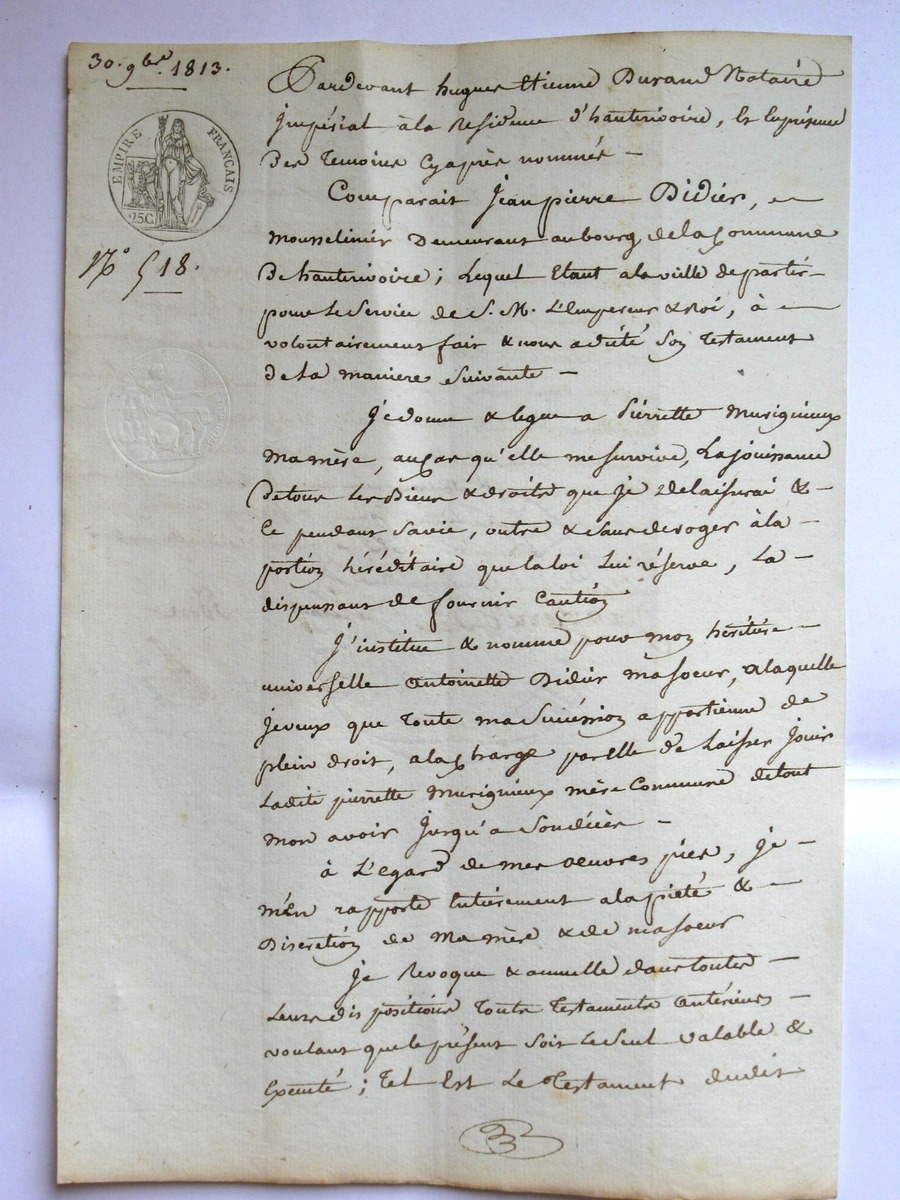 30. 9bre 1813.
EMPIRE FRANÇAIS
25C.
N° 518.
Pardevant hugues Etienne Durand Notaire
Impérial à la Residence d'hauterivoire, Et En présence
Des Temoins Cyaprès nommés —
Comparait Jean pierre Didier, —
mousselinier Demeurant au bourg de la Commune
De hauterivoire ; Lequel Etant a la veille de partir —
pour Le Service de S. M. L'Empereur & Roi, à —
volontairement fait & nous a dicté Son Testament
de la maniere Suivante —
Je donne & legue a Pierrette Murigneux
Ma mère, au Cas qu'elle me Survive, La jouissance
De tous Les Biens & droits que je delaisserai & —
Ce pendant Sa vie, outre & Sans deroger à la —
portion héréditaire que la loi Lui réserve, La —
dispensant de fournir Caution
J'institue & nomme pour mon héritière —
universelle Antoinette Didier ma Soeur, a laquelle
je veux que Toute ma Succession appartienne de
plein droit, a la Charge par Elle de Laisser jouir
Ladite pierrette Murigneux mère Commune de tout
mon avoir jusqu'a Son décès —
à L'egard de mes oeuvres pies, je —
m'en rapporte Entièrement a la piété & —
Discretion de Ma mère & de ma Soeur
Je Revoque & annulle dans toutes —
Leurs dispositions Touts Testaments Antérieurs —
voulant que le présent Soit Le Seul valable &
Executé ; Tel Est Le Testament dudit